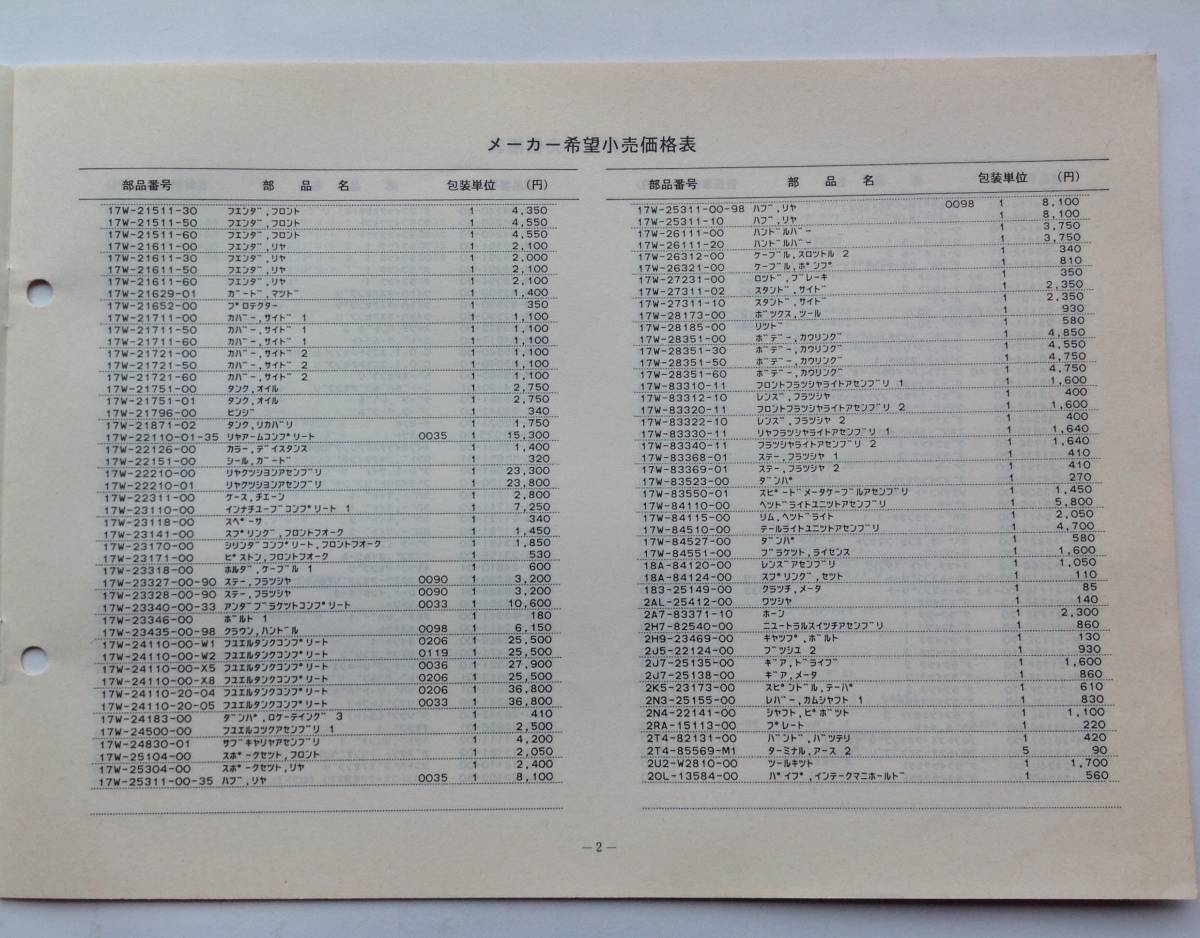 メーカー希望小売価格表
部品番号 部品名 包装単位 (円)
17W-21511-30 フエンダ゛,フロント 1 4,350
17W-21511-50 フエンダ゛,フロント 1 4,550
17W-21511-60 フエンダ゛,フロント 1 4,550
17W-21611-00 フエンダ゛,リヤ 1 2,100
17W-21611-30 フエンダ゛,リヤ 1 2,000
17W-21611-50 フエンダ゛,リヤ 1 2,100
17W-21611-60 フエンダ゛,リヤ 1 2,100
17W-21629-01 ガ゛ート゛,マツド 1 1,400
17W-21652-00 プ゚ロテクター 1 350
17W-21711-00 カバ゛ー,サイド゛ 1 1 1,100
17W-21711-50 カバ゛ー,サイド゛ 1 1 1,100
17W-21711-60 カバ゛ー,サイド゛ 1 1 1,100
17W-21721-00 カバ゛ー,サイド゛ 2 1 1,100
17W-21721-50 カバ゛ー,サイド゛ 2 1 1,100
17W-21721-60 カバ゛ー,サイド゛ 2 1 1,100
17W-21751-00 タンク,オイル 1 2,750
17W-21751-01 タンク,オイル 1 2,750
17W-21796-00 ヒンジ゛ 1 340
17W-21871-02 タンク,リカバ゛リ 1 1,750
17W-22110-01-35 リヤアームコンプ゚リート 0035 1 15,300
17W-22126-00 カラー,デ゛イスタンス 1 1,400
17W-22151-00 シール,ガ゛ード゛ 1 320
17W-22210-00 リヤクツシヨンアセンブ゛リ 1 23,300
17W-22210-01 リヤクツシヨンアセンブ゛リ 1 23,800
17W-22311-00 ケース,チエーン 1 2,800
17W-23110-00 インナチユーブ゛コンプ゚リート 1 1 7,250
17W-23118-00 スペ゚ーサ 1 340
17W-23141-00 スプ゚リング゛,フロントフオーク 1 1,450
17W-23170-00 シリンダ゛コンプ゚リート,フロントフオーク 1 1,850
17W-23171-00 ピ゚ストン,フロントフオーク 1 530
17W-23318-00 ホルダ゛,ケーブ゛ル 1 1 600
17W-23327-00-90 ステー,フラツシヤ 0090 1 3,200
17W-23328-00-90 ステー,フラツシヤ 0090 1 3,200
17W-23340-00-33 アンダ゛ブ゛ラケツトコンプ゚リート 0033 1 10,600
17W-23346-00 ボ゛ルト 1 1 180
17W-23435-00-98 クラウン,ハンド゛ル 0098 1 6,150
17W-24110-00-W1 フユエルタンクコンプ゚リート 0206 1 25,500
17W-24110-00-W2 フユエルタンクコンプ゚リート 0119 1 25,500
17W-24110-00-X5 フユエルタンクコンプ゚リート 0036 1 27,900
17W-24110-00-X8 フユエルタンクコンプ゚リート 0206 1 25,500
17W-24110-20-04 フユエルタンクコンプ゚リート 0206 1 36,800
17W-24110-20-05 フユエルタンクコンプ゚リート 0033 1 36,800
17W-24183-00 ダ゛ンパ゚,ロケーテイング゛ 3 1 410
17W-24500-00 フユエルコツクアセンブ゛リ 1 1 2,500
17W-24830-01 サブ゛キヤリヤアセンブ゛リ 1 4,200
17W-25104-00 スポ゚ークセツト,フロント 1 2,050
17W-25304-00 スポ゚ークセツト,リヤ 1 2,400
17W-25311-00-35 ハブ゛,リヤ 0035 1 8,100
部品番号 部品名 包装単位 (円)
17W-25311-00-98 ハブ゛,リヤ 0098 1 8,100
17W-25311-10 ハブ゛,リヤ 1 8,100
17W-26111-00 ハンド゛ルバ゛ー 1 3,750
17W-26111-20 ハンド゛ルバ゛ー 1 3,750
17W-26312-00 ケーブ゛ル,スロツトル 2 1 340
17W-26321-00 ケーブ゛ル,ポ゚ンプ゚ 1 810
17W-27231-00 ロツド゛,ブ゛レーキ 1 350
17W-27311-02 スタンド゛,サイド゛ 1 2,350
17W-27311-10 スタンド゛,サイド゛ 1 2,350
17W-28173-00 ボ゛ツクス,ツール 1 930
17W-28185-00 リツド゛ 1 580
17W-28351-00 ボ゛デ゛ー,カウリング゛ 1 4,850
17W-28351-30 ボ゛デ゛ー,カウリング゛ 1 4,550
17W-28351-50 ボ゛デ゛ー,カウリング゛ 1 4,750
17W-28351-60 ボ゛デ゛ー,カウリング゛ 1 4,750
17W-83310-11 フロントフラツシヤライトアセンブ゛リ 1 1 1,600
17W-83312-10 レンズ゛,フラツシヤ 1 400
17W-83320-11 フロントフラツシヤライトアセンブ゛リ 2 1 1,600
17W-83322-10 レンズ゛,フラツシヤ 2 1 400
17W-83330-11 リヤフラツシヤライトアセンブ゛リ 1 1 1,640
17W-83340-11 フラツシヤライトアセンブ゛リ 2 1 1,640
17W-83368-01 ステー,フラツシヤ 1 1 410
17W-83369-01 ステー,フラツシヤ 2 1 410
17W-83523-00 ダ゛ンパ゚ 1 270
17W-83550-01 スピ゚ード゛メータケーブ゛ルアセンブ゛リ 1 1,450
17W-84110-00 ヘツド゛ライトユニツトアセンブ゛リ 1 5,800
17W-84115-00 リム,ヘツド゛ライト 1 2,050
17W-84510-00 テールライトユニツトアセンブ゛リ 1 4,700
17W-84527-00 ダ゛ンパ゚ 1 580
17W-84551-00 ブ゛ラケツト,ライセンス 1 1,600
18A-84120-00 レンズ゛アセンブ゛リ 1 1,050
18A-84124-00 スプ゚リング゛,セツト 1 110
183-25149-00 クラツチ,メータ 1 85
2AL-25412-00 ワツシヤ 1 140
2A7-83371-10 ホーン 1 2,300
2H7-82540-00 ニユートラルスイツチアセンブ゛リ 1 860
2H9-23469-00 キヤツプ゚,ボ゛ルト 1 130
2J5-22124-00 ブ゛ツシユ 2 1 930
2J7-25135-00 ギ゛ア,ド゛ライブ゛ 1 1,600
2J7-25138-00 ギ゛ア,メータ 1 860
2K5-23173-00 スピ゚ンド゛ル,テーパ゚ 1 610
2N3-25155-00 レバ゛ー,カムシヤフト 1 1 830
2N4-22141-00 シヤフト,ピ゚ボ゛ツト 1 1,100
2RA-15113-00 プ゚レート 1 220
2T4-82131-00 バ゛ンド゛,バ゛ツテリ 1 420
2T4-85569-M1 ターミナル,アース 2 5 90
2U2-W2810-00 ツールキツト 1 1,700
20L-13584-00 パ゚イプ゚,インテークマニホールド゛ 1 560
—2—